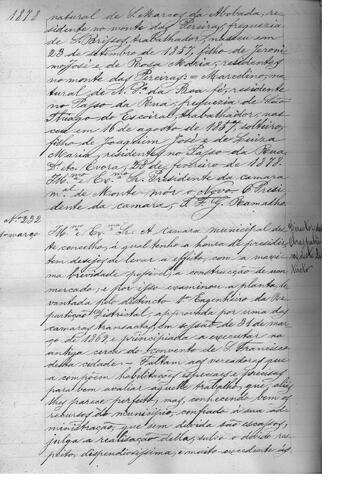 1878
natural de S. Marcos da Abobada, re-
sidente no monte das Pereiras, freguezia
de S. Brissos, trabalhador, nasceu em
23 de setembro de 1857, filho de Jeroni-
mo José e de Rosa Maria, residentes
no monte das Pereiras = Marcelino, na-
tural de N. Sra. da Boa fé, residente
no Passo da Rua, freguezia de São
Thiago do Escoiral, trabalhador, nas-
ceu em 16 de agosto de 1857, solteiro,
filho de Joaquim José e de Luiza
Maria, residentes no Passo da Rua,
Ds. Ge. Evora, 28 de fevereiro de 1878.
Illmo. Exmo. Sr. Presidente da camara
mal. de Monte mór o Novo O Presi-
dente da camara, Ramalho
No. 232
março
Illmo. e Exmo. Sr. A camara municipal des-
te concelho, á qual tenho a honra de presidir,
tem desejos de levar a effeito, com a maxi-
ma brevidade possivel, a construcção de um
mercado, e por isso examinou a planta le-
vantada pelo distincto Engenheiro da Re-
partição Districtal, approvada por uma das
camaras transactas em sessão de 31 de mar-
ço de 1869, e principiada a executar na
antiga cerca do convento de S. Francisco
desta cidade = Faltam aos vereadores que
a compõem habilitações expressas e precisas
para bem avaliar aquelle trabalho, que, aliás
lhes parece perfeito, mas, conhecendo bem os
recursos do municipio, confiado á sua ad-
ministração, que sem duvida são escassos,
julga a realisação della, salvo o devido res-
peito, dispendiosissima, e muito excedente ás